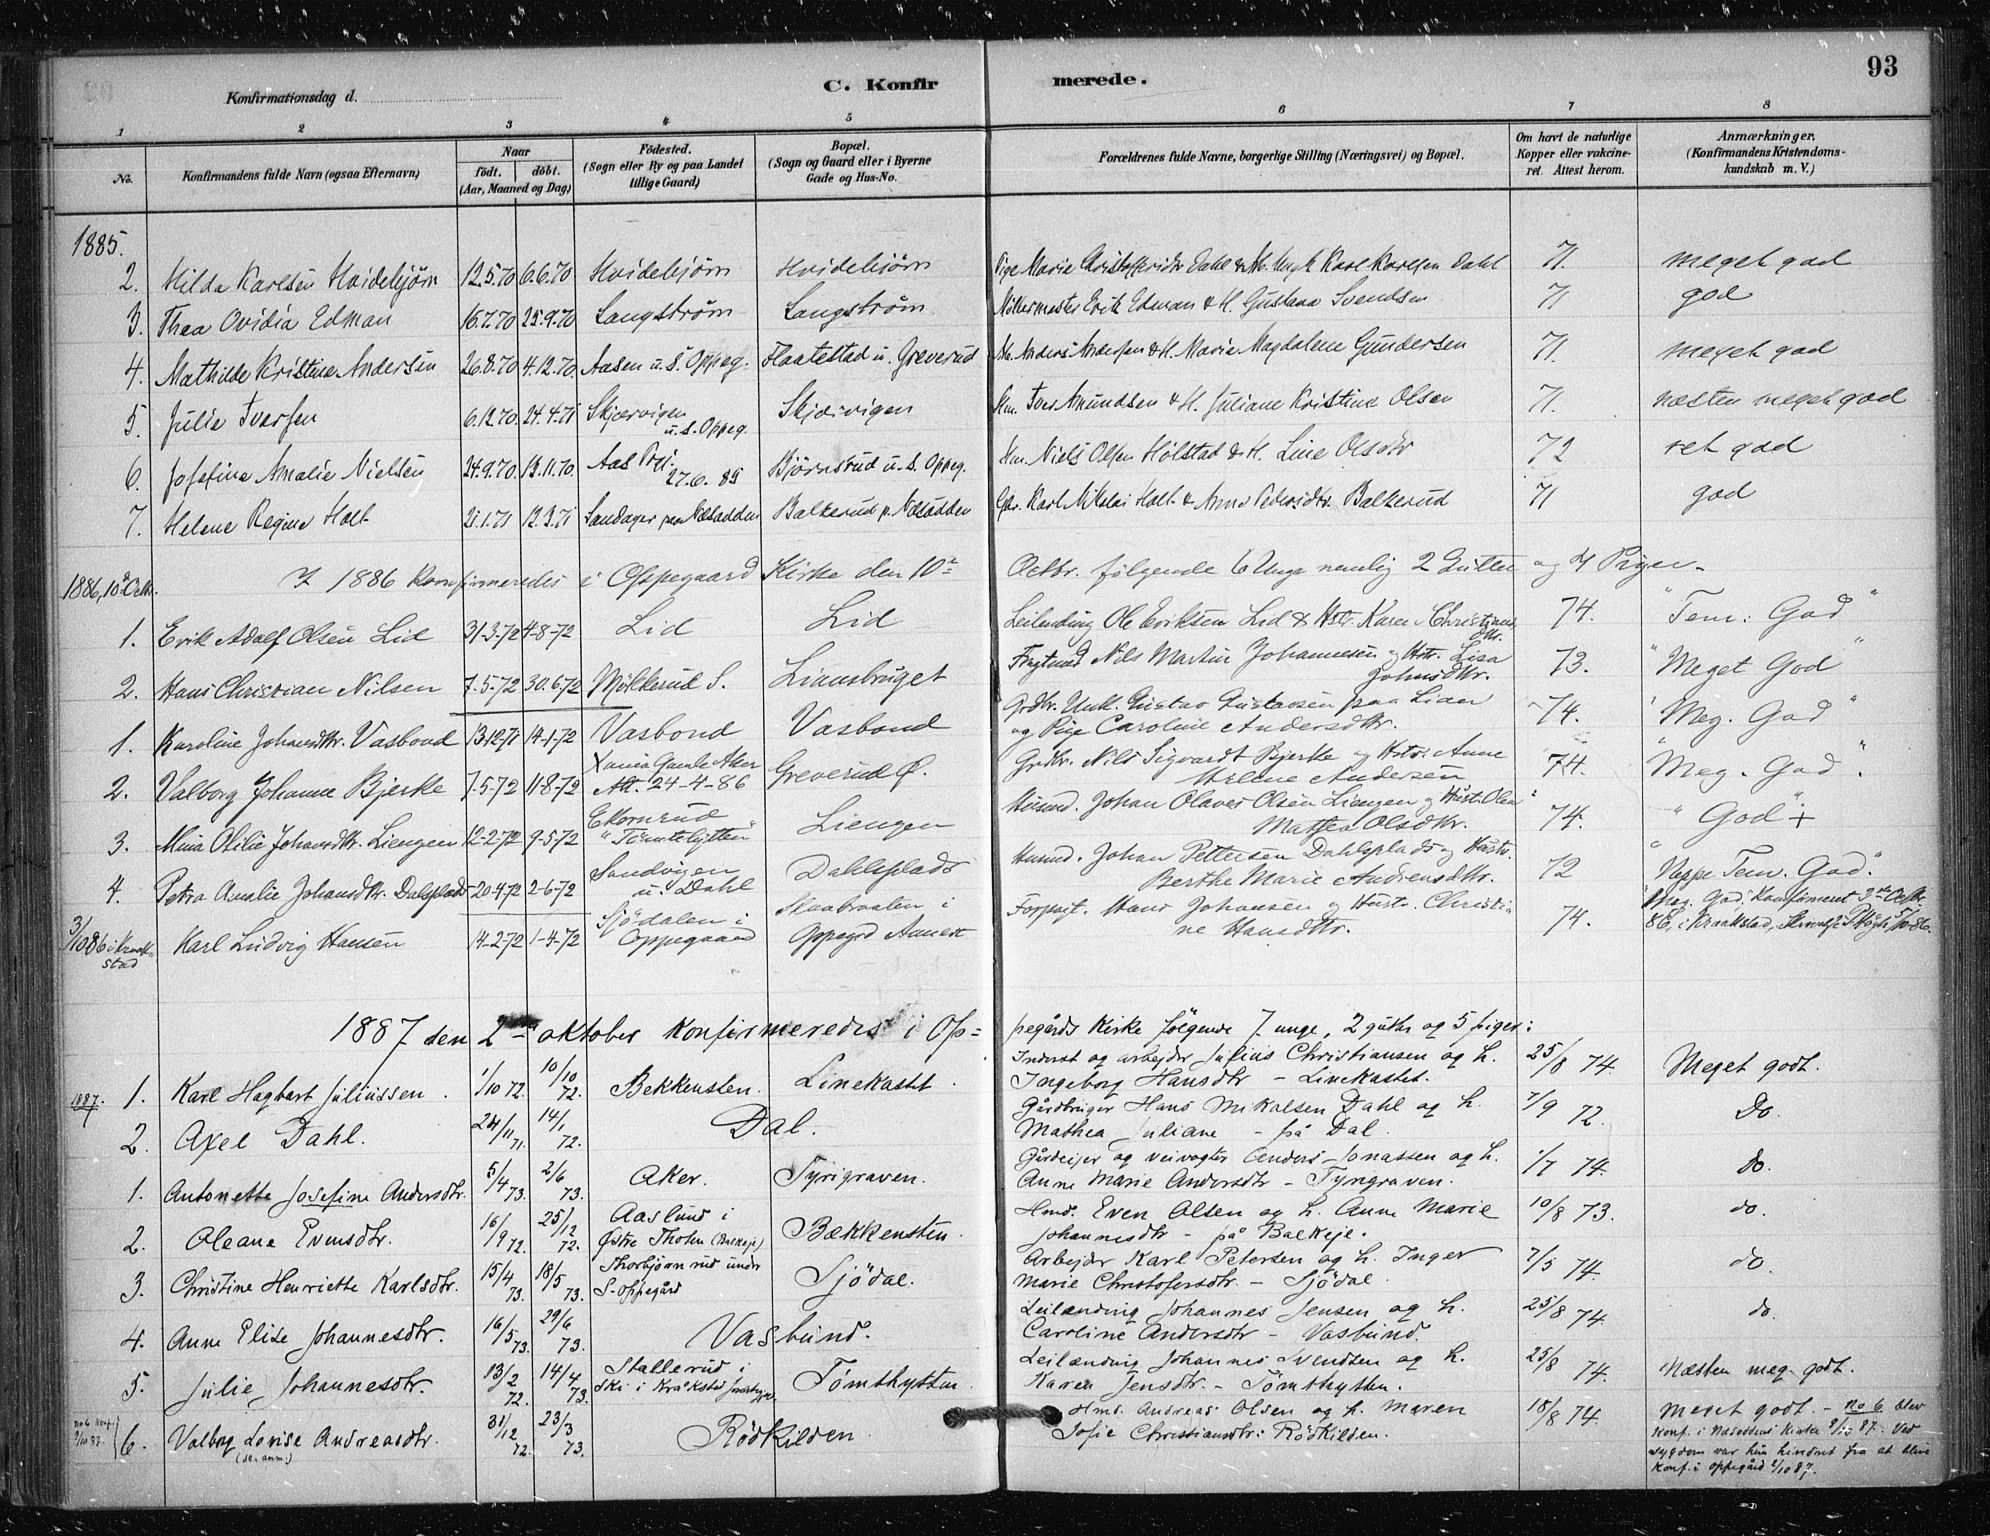 93
C. Konfirmerede.
Konfirmationsdag d.
1 2 3 4 5 6 7 8
No. Konfirmandens fulde Navn (ogsaa Efternavn) Naar födt. döbt. (Aar, Maaned og Dag) Födested. (Sogn eller By og paa Landet tillige Gaard) Bopæl. (Sogn og Gaard eller i Byerne Gade og Hus-No. Forældrenes fulde Navne, borgerlige Stilling (Næringsvei) og Bopæl. Om havt de naturlige Kopper eller vakcineret. Attest herom. Anmærkninger. (Konfirmandens Kristendomskundskab m. V.)
1885.
2. Hilda Karlsen Hvidebjørn 12.5.70 6.6.70 Hvidebjørn Hvidebjørn Pige Marie Karl Karlsen Dahl 71. meget god
3. Thea Ovidia Edman 16.7.70 25.9.70 Langstrøm Langstrøm Erik Edman & H. Gustava Svendsen 71 god
4. Mathilde Kristine Andersen 26.8.70 4.12.70 Aasen u. S. Oppeg. Flaatestad u. Greverud Anders Andersen & H. Marie Magdalene Gundersen 71. meget god
5. Julie Iversen 6.12.70 24.4.71 Skjærvigen u. S. Oppeg. Skjærvigen Hm. Iver Amundsen & H. Juliane Kristine Olsen 71. næsten meget god
6. Josefine Amalie Nielsen 24.9.70 13.11.70 Aas Pgj. 27.6.85 Bjørnsrud u. S. Oppeg. Hm. Niels Olsen Holstad & H. Line Olsdtr 72 ret god
7. Helene Regine Holt 21.1.71 12.3.71 Sandager paa Næsodden Balkerud p. Næsodden Karl Nikolai Holt & Anne Pedersdtr. Balkerud 71 god
1886, 10de Octbr. I 1886 konfirmeredes i Oppegaard Kirke den 10de Octbr. følgende 6 Unge nemlig 2 Gutter og 4 Piger.
1. Erik Adolf Olsen Lid 31-3-72 4-8-72 Lid Lid Leilending Ole Eriksen Lid & Hstr. Karen Christians dtr. 74. "Tem: God"
2. Hans Christian Nilsen 7-5-72 30-6-72 Møllerud S. Liansbruget Nils Martin Johannesen og Hstr. Lisa Johnsdtr. 73. "Meget God"
1. Karoline Johansdtr. Vasbond 13-12-71 14-1-72 Vasbond Vasbond Grdbr. Unk. Gustav Gustavsen paa Lian og Pige Caroline Andersdtr. 74. "Meg. God"
2. Valborg Johanne Bjerke 7-5-72 11-8-72 Xania Gamle Aker Att. 24-4-86 Greverud Ø. Grdbr. Nils Sigvardt Bjerke og Hstr. Anne Helene Andersen 74. "Meg. God".
3. Mina Otilie Johansdtr. Liengen 12-2-72 9-5-72 Ekornrud "Tømtehytten" Liengen Husmd. Johan Olaves Olsen Liengen og Hust. Olea Mathea Olsdtr. 74. "God" +
4. Petra Amalie Johansdtr. Dalsplads 20-4-72 2-6-72 Sandvigen u. Dahl Dahlsplads Husmd. Johan Pettersen Dahlsplads og Hustr. Berthe Marie Andreasdtr. 72 "Neppe Tem. God."
3/10 86 i Kraakstad Karl Ludvig Hansen 14-2-72 1-4-72 Sjödalen i Oppegaard i Oppegrd Annex Forpagt. Hans Johansen og Hustr. Christine Hansdtr. 74. "Meg. God." Konfirmeret 3die Octbr. 86, i Kraakstad, 5/10-86.
1887 den 2den oktober konfirmeredes i Oppegårds kirke følgende 7 unge, 2 gutter og 5 piger:
1887. 1. Karl Hagbart Juliussen. 1/10 72. 10/10 72. Bekkensten. Linekastet. Inderst og arbejdr Julius Christiansen og h. Ingeborg Hansdtr – Linekastet. 25/8 74. Meget godt.
2. Axel Dahl. 24/11 71. 14/1 72. Dal. Gårdbruger Hans Mikalsen Dahl og h. Mathea Juliane – på Dal. 7/9 72. Do.
1. Antonette Josefine Andersdtr. 5/4 73. 2/6 73. Aker. Tyrigraven. Gårdeijer og veivogter Anders Jonassen og h. Anne Marie Andersdtr – Tyrigraven. 1/7 74. do.
2. Oleane Evensdtr. 16/9 72. 25/12 72. Aaslund i Østre Thoten (Balkeje) Bækkensten. Hmd. Even Olsen og h. Anne Marie Johannesdtr – på Balkeje. 10/8 73. do.
3. Christine Henriette Karlsdtr. 15/4 73. 18/5 73. Thorbjørnrud under S-oppegård Sjödal. Arbejdr Karl Petersen og h. Inger Marie Christofersdtr – Sjödal. 7/5 74. do.
4. Anne Elise Johannesdtr. 16/5 73. 29/6 73. Vasbund. Leilænding Johannes Jensen og h. Caroline Andersdtr – Vasbund. 25/8 74. do
5. Julie Johannesdtr. 13/2 72. 14/4 73. Stallerud i Ski i Kråkstad Tømthytten Leilænding Johannes Svendsen og h. Karen Jensdtr. – Tømthytten. 25/8 74. Næsten meg. godt.
No 6 konf. 9/10 87. 6. Valborg Lovise Andreasdtr. (se anm:) 31/12 72. 23/3 73. Rödkilden Hmd. Andreas Olsen og h. Maren Sofie Christiansdtr: Rödkilden. 18/8 74. Meget godt. – No 6 blev konf. i Næsoddens kirke 9/10 87. Ved sygdom var hun hindret fra at blive konf. i oppegård 2/10 87.